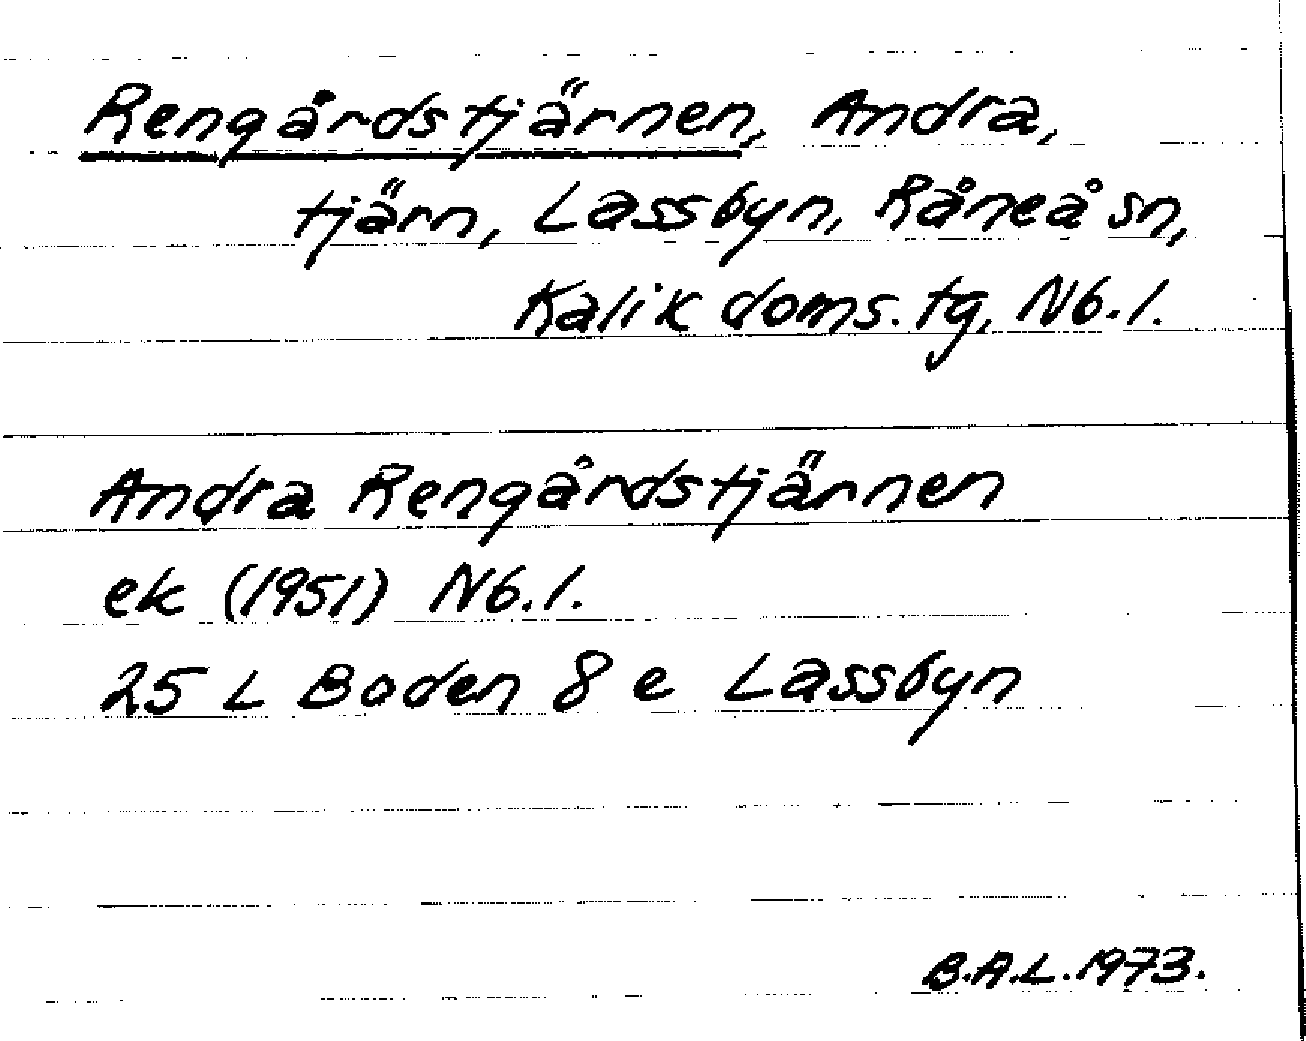 Rengårdstjärnen, Andra,
tjärn, Lassbyn, Råneå sn,
Kalix doms. tg, Nb. l.
Andra Rengårdstjärnen
ek (1951) Nb. l.
25 L Boden 8 e Lassbyn
B.A.L. 1973.